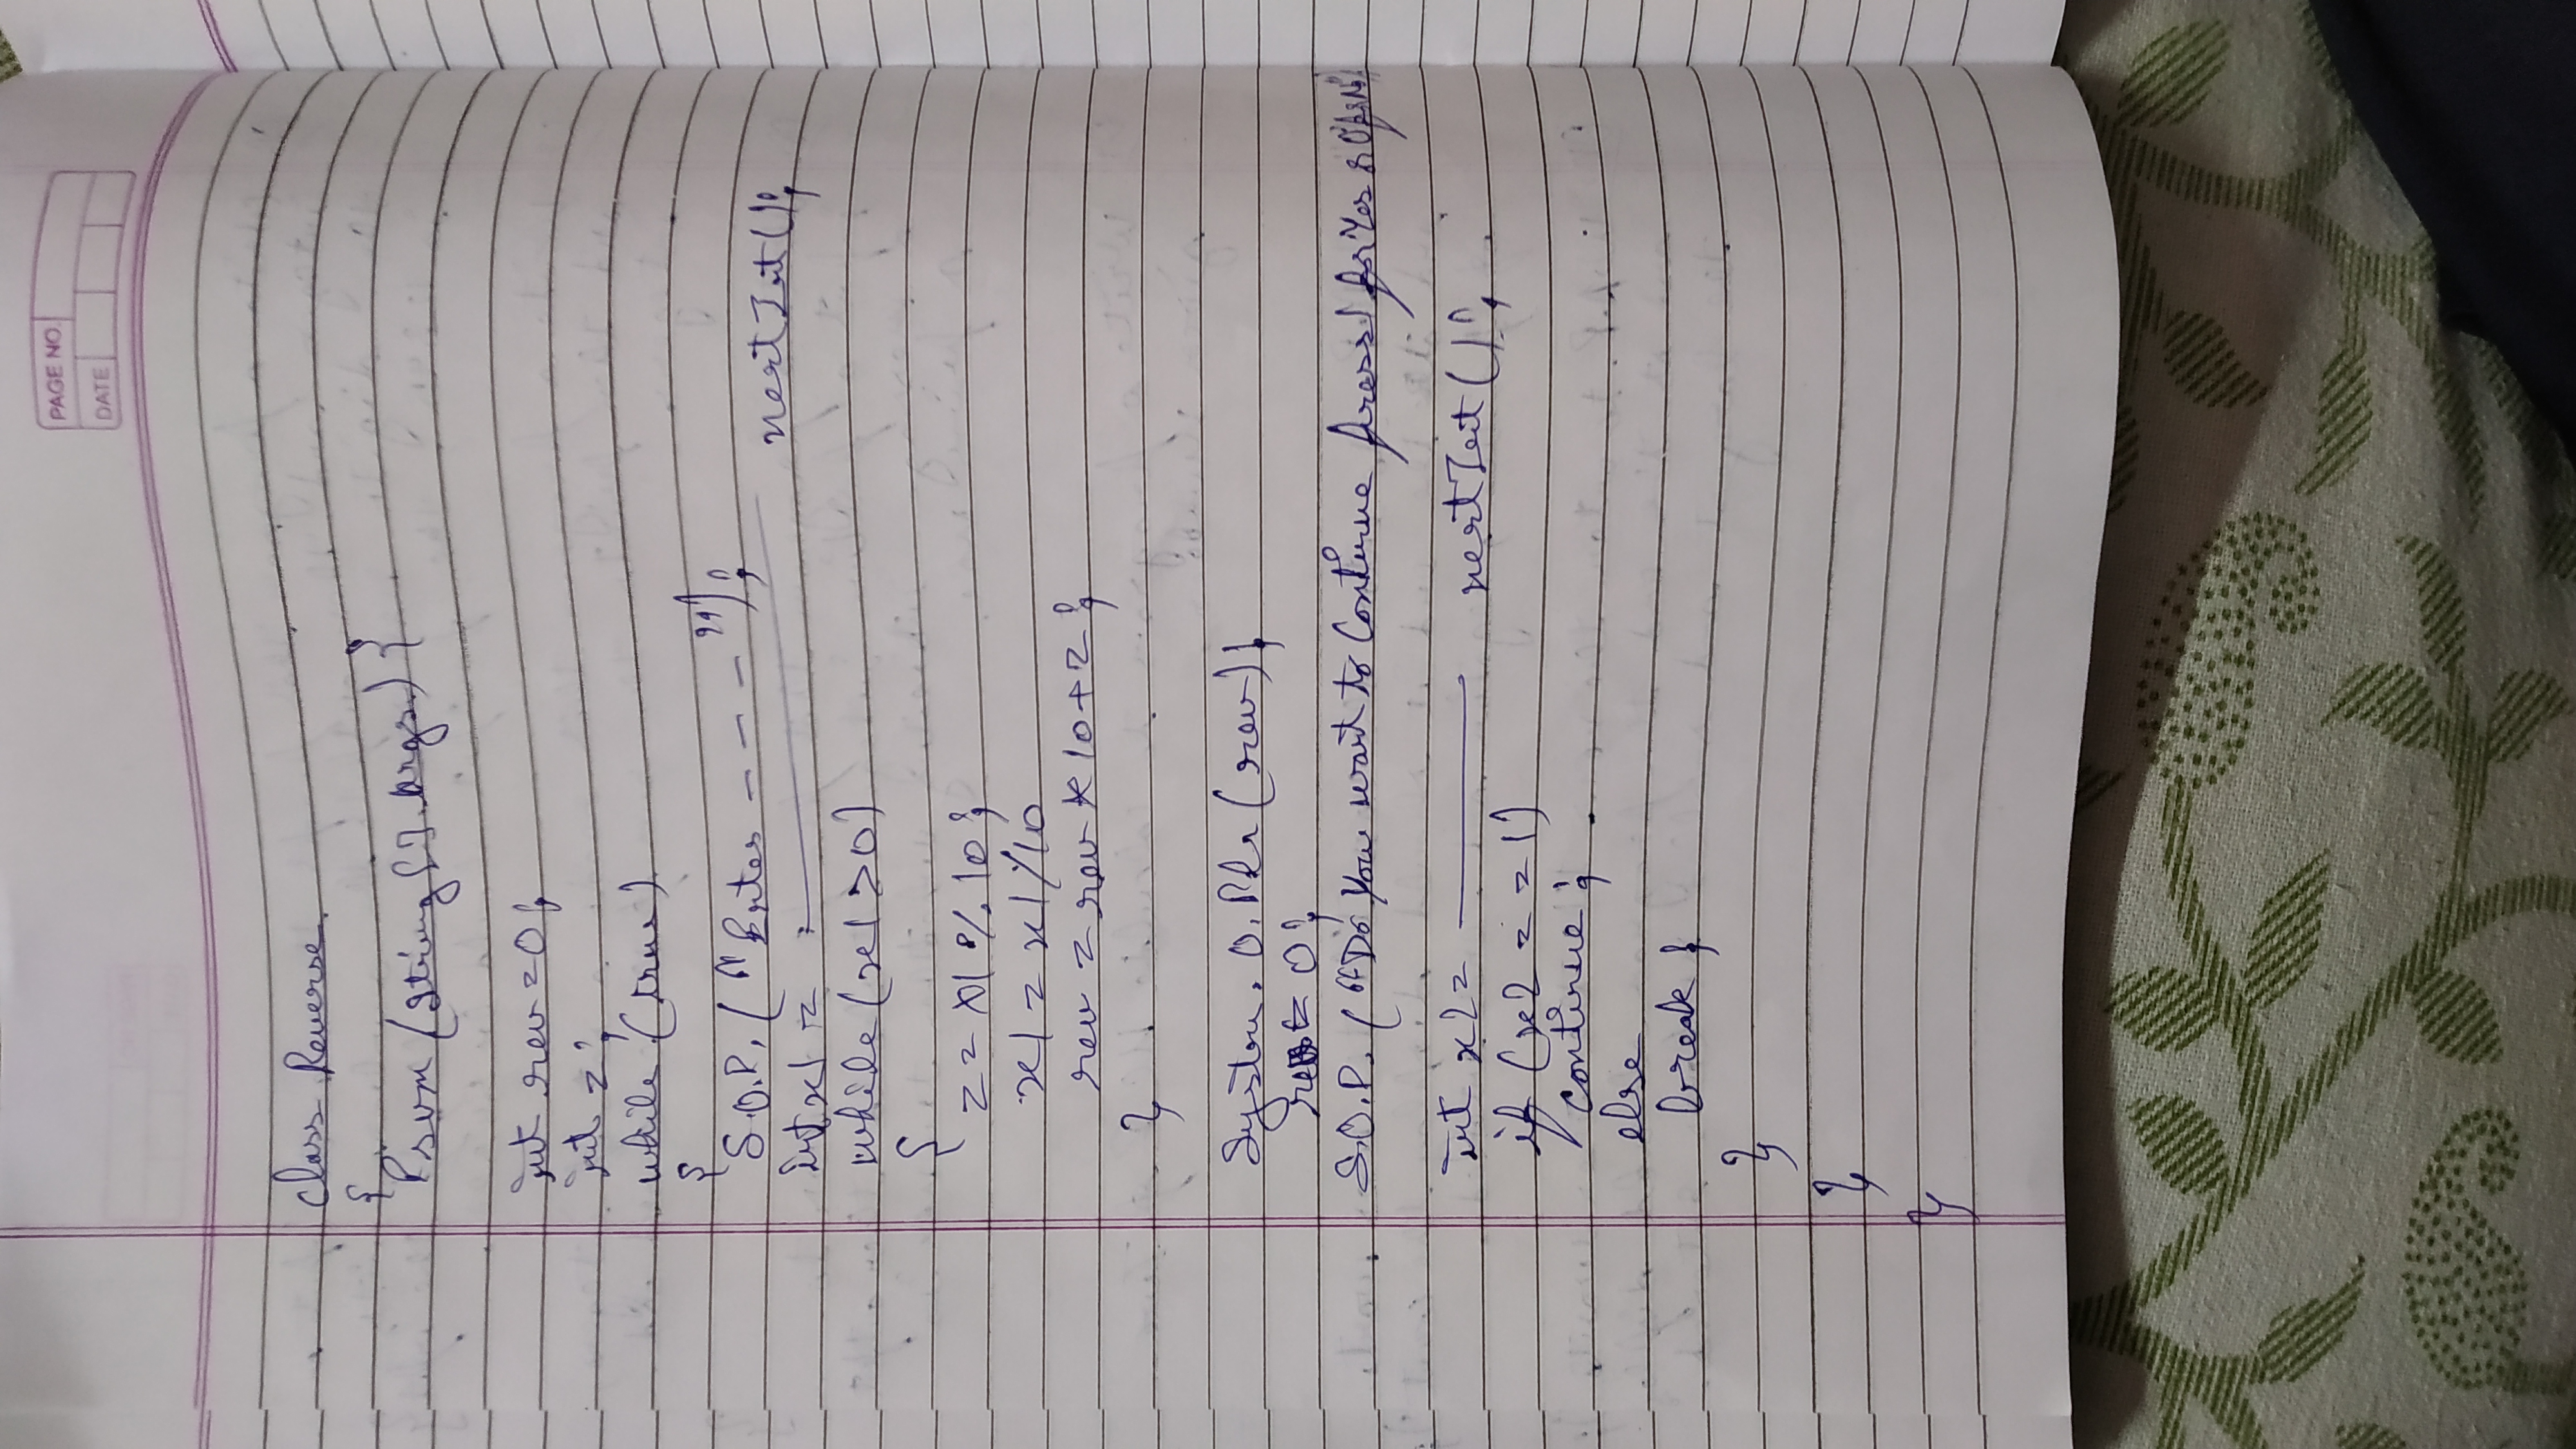 PAGE NO.
DATE
class Reverse
{
Psvm (String [] args) {
int rev = 0;
int z;
while (true)
{
S.O.P. ("Enter - - - -");
int x1 = nextInt();
while (x1 > 0)
{
z = x1 % 10;
x1 = x1/10
rev = rev * 10 + z;
}
System. O. Pln (rev);
rev = 0;
S.O.P. ("Do You want to Continue press 1 for Yes & 0 for No"
int x2 = nextInt();
if (x2 == 1)
continue;
else
break;
}
}
}